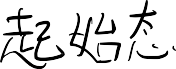 起始态